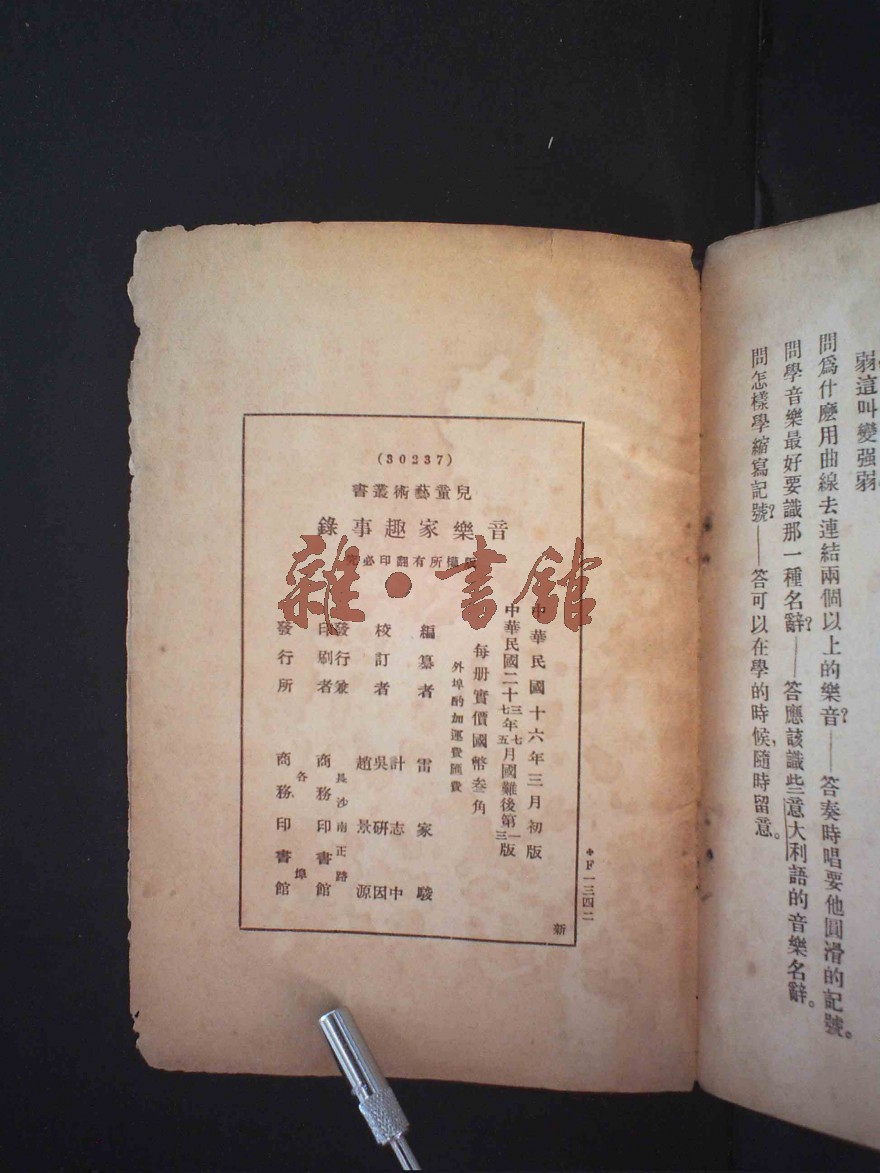 弱這叫變强弱
問爲什麼用曲線去連結兩個以上的樂音?——答奏時唱要他圓滑的記號。
問學音樂最好要識那一種名辭?——答應該識些意大利語的音樂名辭。
問怎樣學縮寫記號?——答可以在學的時候,隨時留意。
(30237)
兒童藝術叢書
音樂家趣事錄
版權所有翻印必究
中華民國十六年三月初版
中華民國二十三年七月國難後第一版
七年五月 三版
每册實價國幣叁角
外埠酌加運費匯費
編纂者 雷家駿
校訂者 計志中
吳研因
趙景源
發行兼印刷者 長沙南正路
商務印書館
發行所 各埠
商務印書館
新
*F一三四二
雜·書館